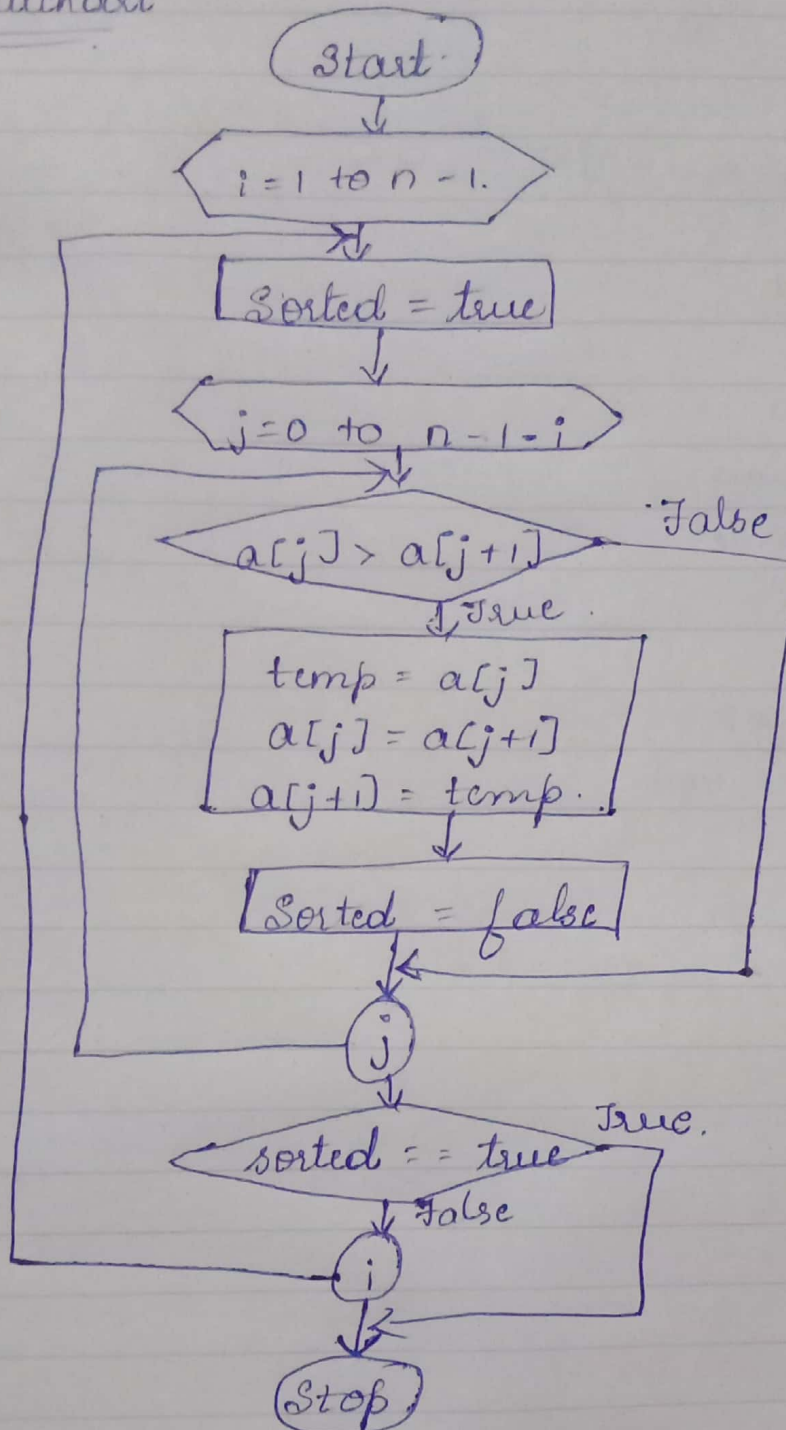 Start.
i = 1 to n - 1.
Sorted = true
j=0 to n - 1 - i
a[j] > a[j+1]
False
True.
temp = a[j]
a[j] = a[j+1]
a[j+1] = temp.
Sorted = false
j
sorted == true
True.
False
i
Stop